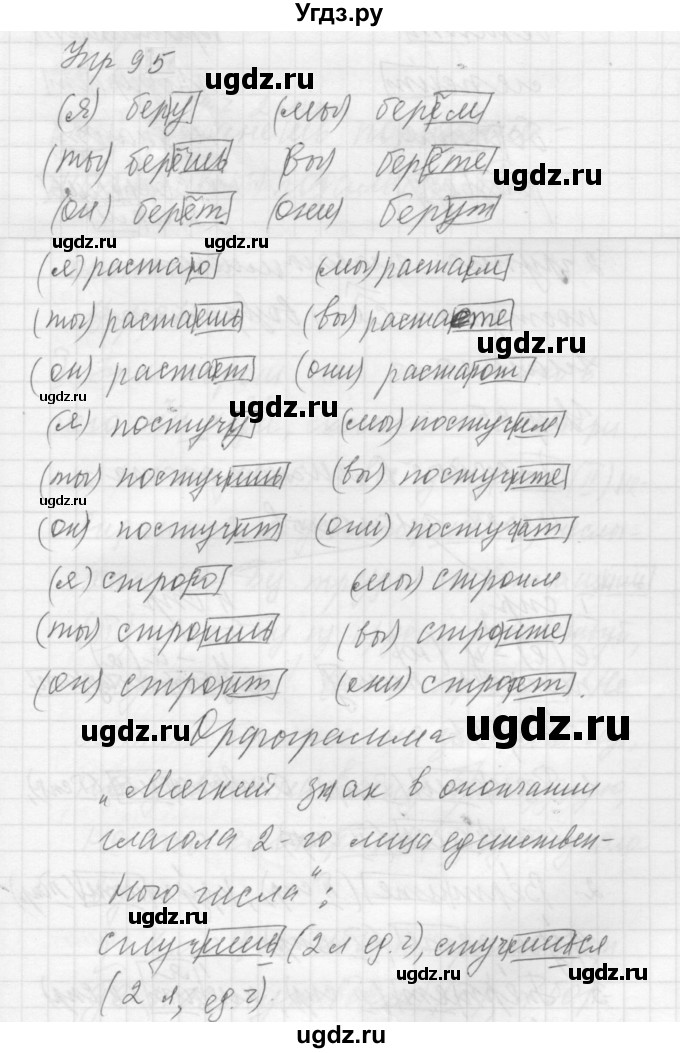 Угдз.ру
Упр 95
ugdz.ru
(я) беру (мы) берём
(ты) берёшь (вы) берёте
ugdz.ru
(он) берёт (они) берут
ugdz.ru ugdz.ru
(я) растаю (мы) растаем
(ты) растаешь (вы) растаете
ugdz.ru
(он) растает (они) растают
ugdz.ru ugdz.ru
(я) постучу (мы) постучим
(ты) постучишь (вы) постучите
ugdz.ru
(он) постучит (они) постучат
(я) строю (мы) строим
(ты) строишь (вы) строите
(он) строит (они) строят.
ugdz.ru Орфограмма ugdz.ru
„Мягкий знак в окончании
глагола 2-го лица единствен-
ного числа“:
ugdz.ru
стучишь (2 л ед. ч), стучишься
ugdz.ru ugdz.ru
(2 л, ед. ч).
ugdz.ru